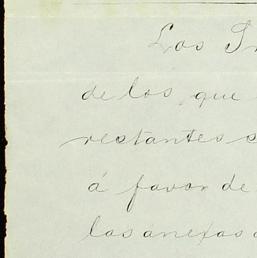 Los
de los que
restantes
á favor de
los anexos